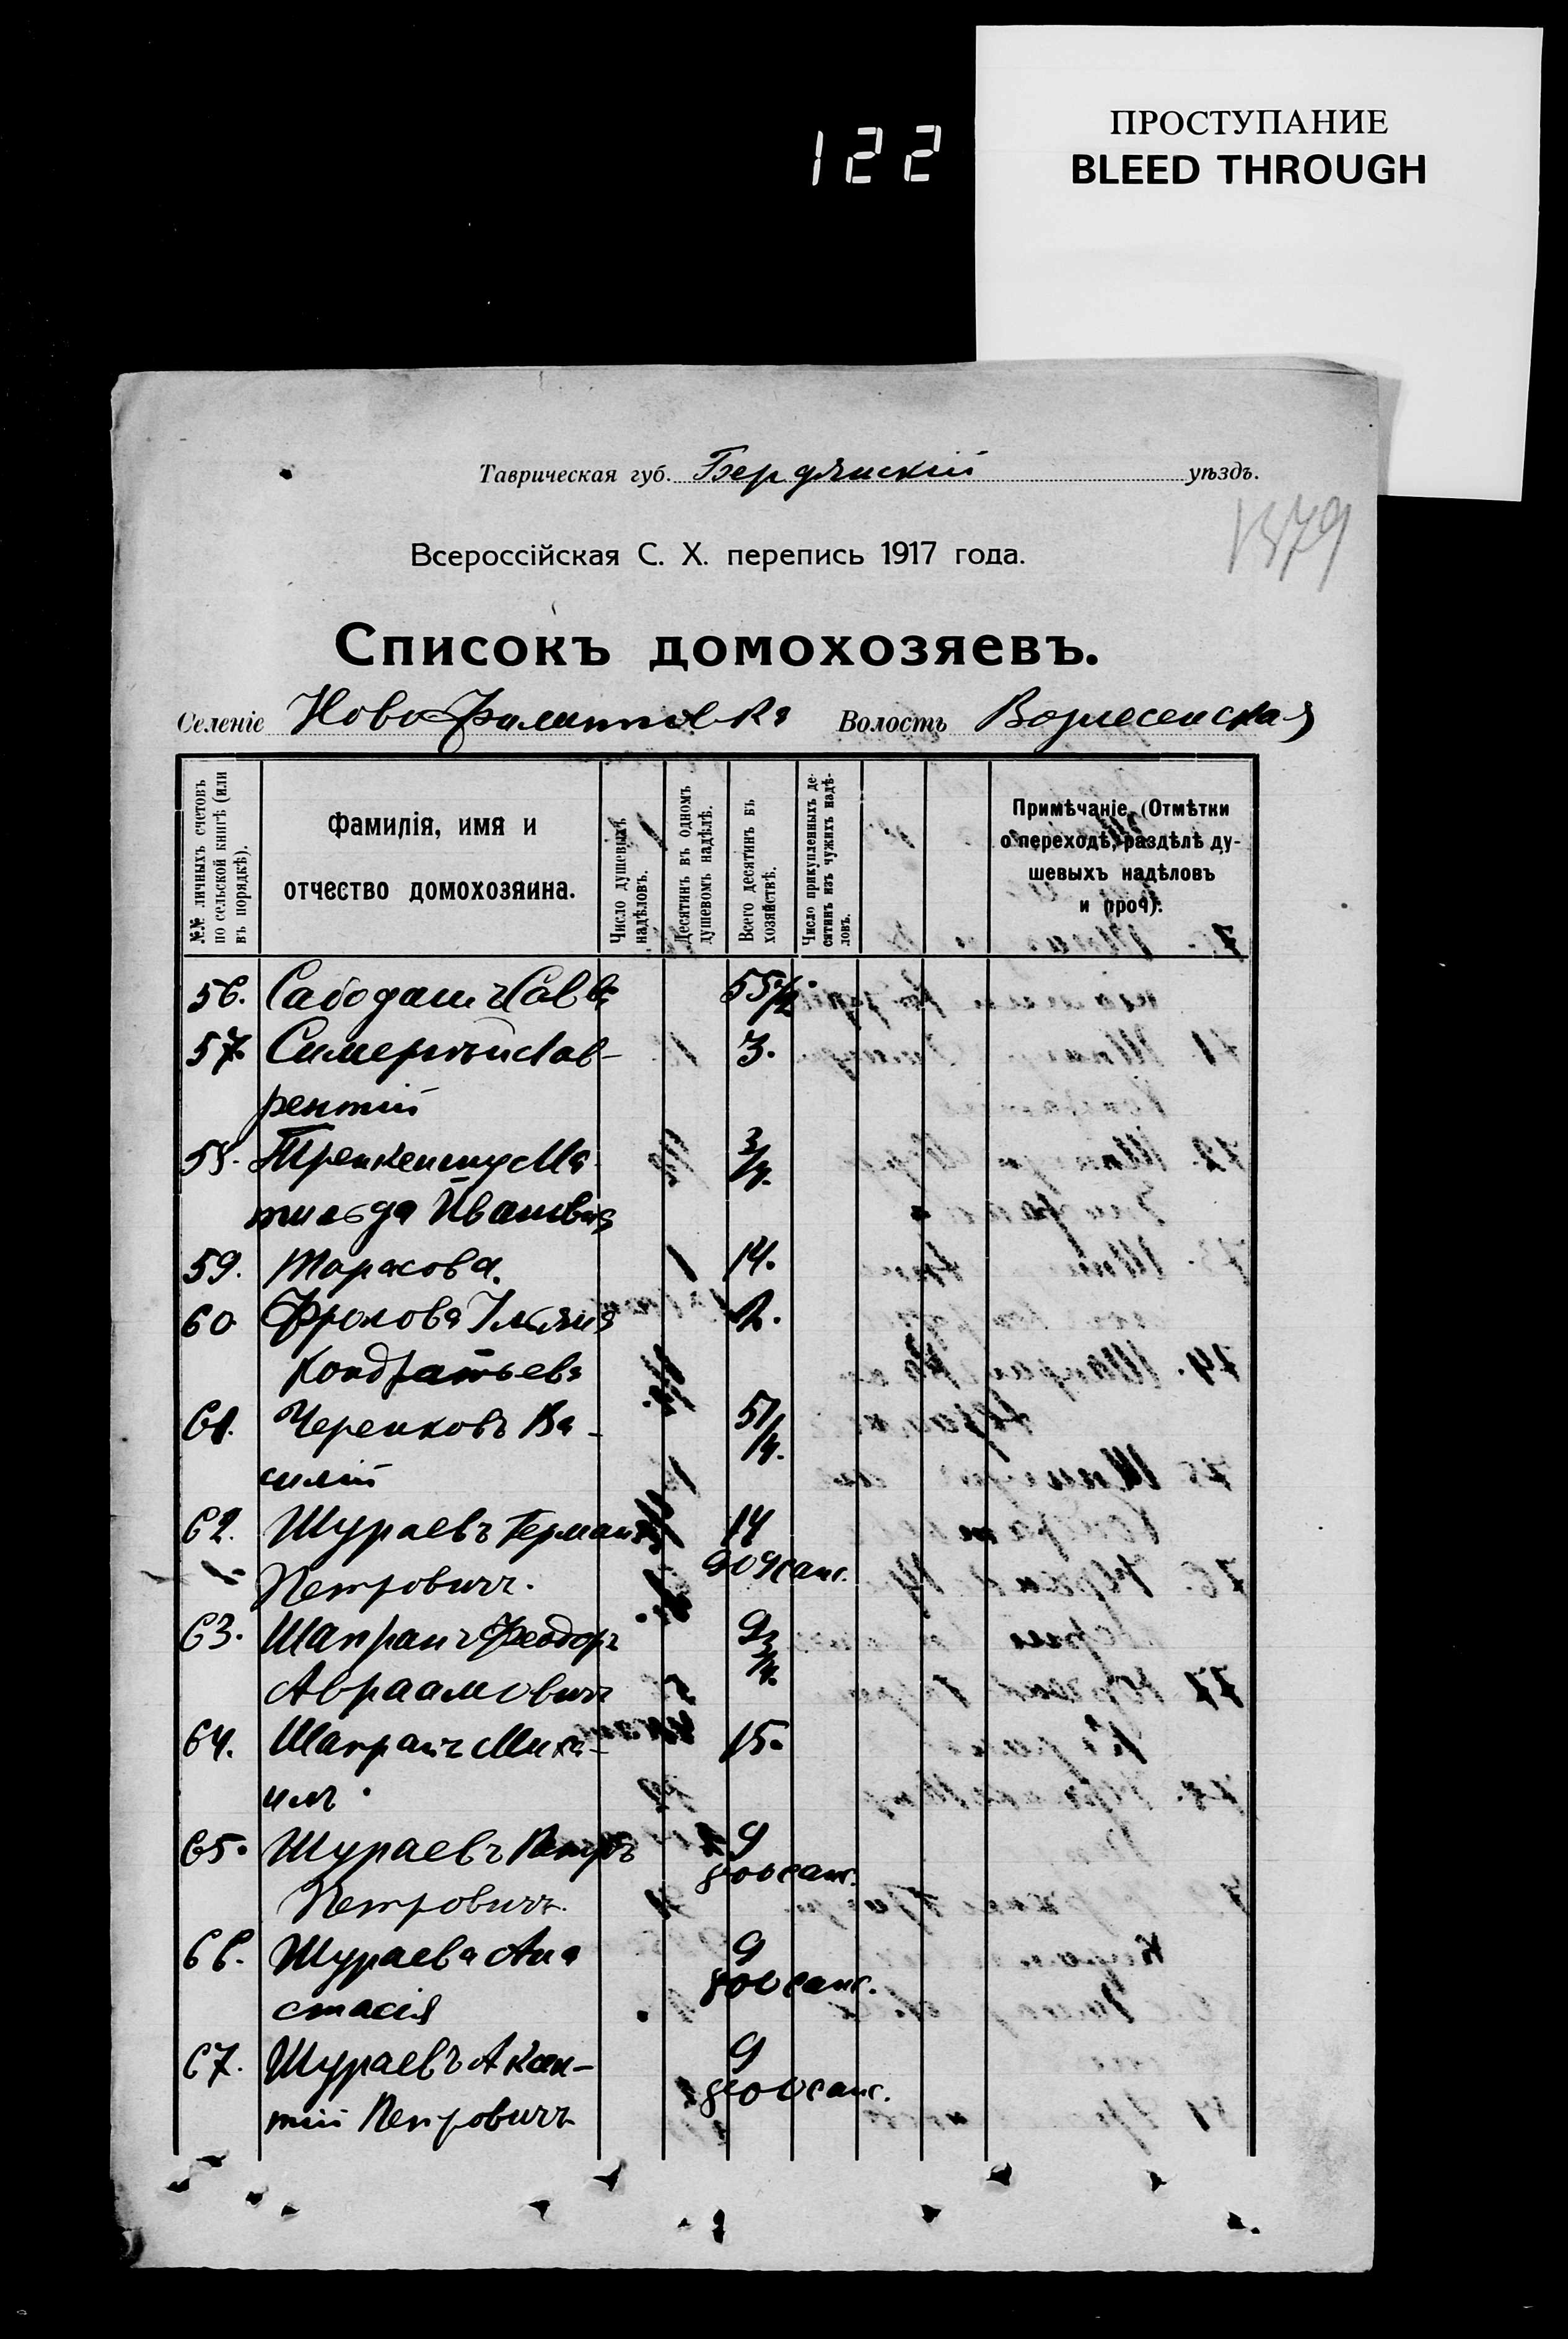 122
ПРОСТУПАНИЕ
BLEED THROUGH
Таврическая губ. Бердянскій уѣздъ.
1379
Всероссійская С. Х. перепись 1917 года.
Списокъ домохозяевъ.
Селеніе Ново Волость Вознесенская
№№ личныхъ счетовъ по сельской книгѣ (или въ порядкѣ).
Фамилія, имя и отчество домохозяина.
Число душевыхъ надѣловъ.
Десятинъ въ одномъ душевомъ надѣлѣ.
Всего десятинъ въ хозяйствѣ.
Число прикупленныхъ десятинъ изъ чужихъ надѣловъ.
Примѣчаніе. (Отмѣтки о переходѣ, раздѣлѣ душевыхъ надѣловъ и проч).
56. Сабодашъ Савва 55 1/2
57. Лав- 3.
рентій
58. Ма 3/4.
тильда Ивановна
59. Тарасова. 14.
60 Фролова 2.
Кондратьева
61. Черенковъ Ва- 51/4.
силій
62. Шураевъ Германъ 14
Петровичъ. 909 саж.
63. Шапранъ Феодоръ 9 3/4.
Авраамовичъ
64. Шапранъ Миха- 15.
илъ.
65. Шураевъ Петръ 9
Петровичъ. 800 саж.
66. Шураева Ана 9
стасія 800 саж.
67. Шураевъ Аксен- 9
тій Петровичъ 800 саж.